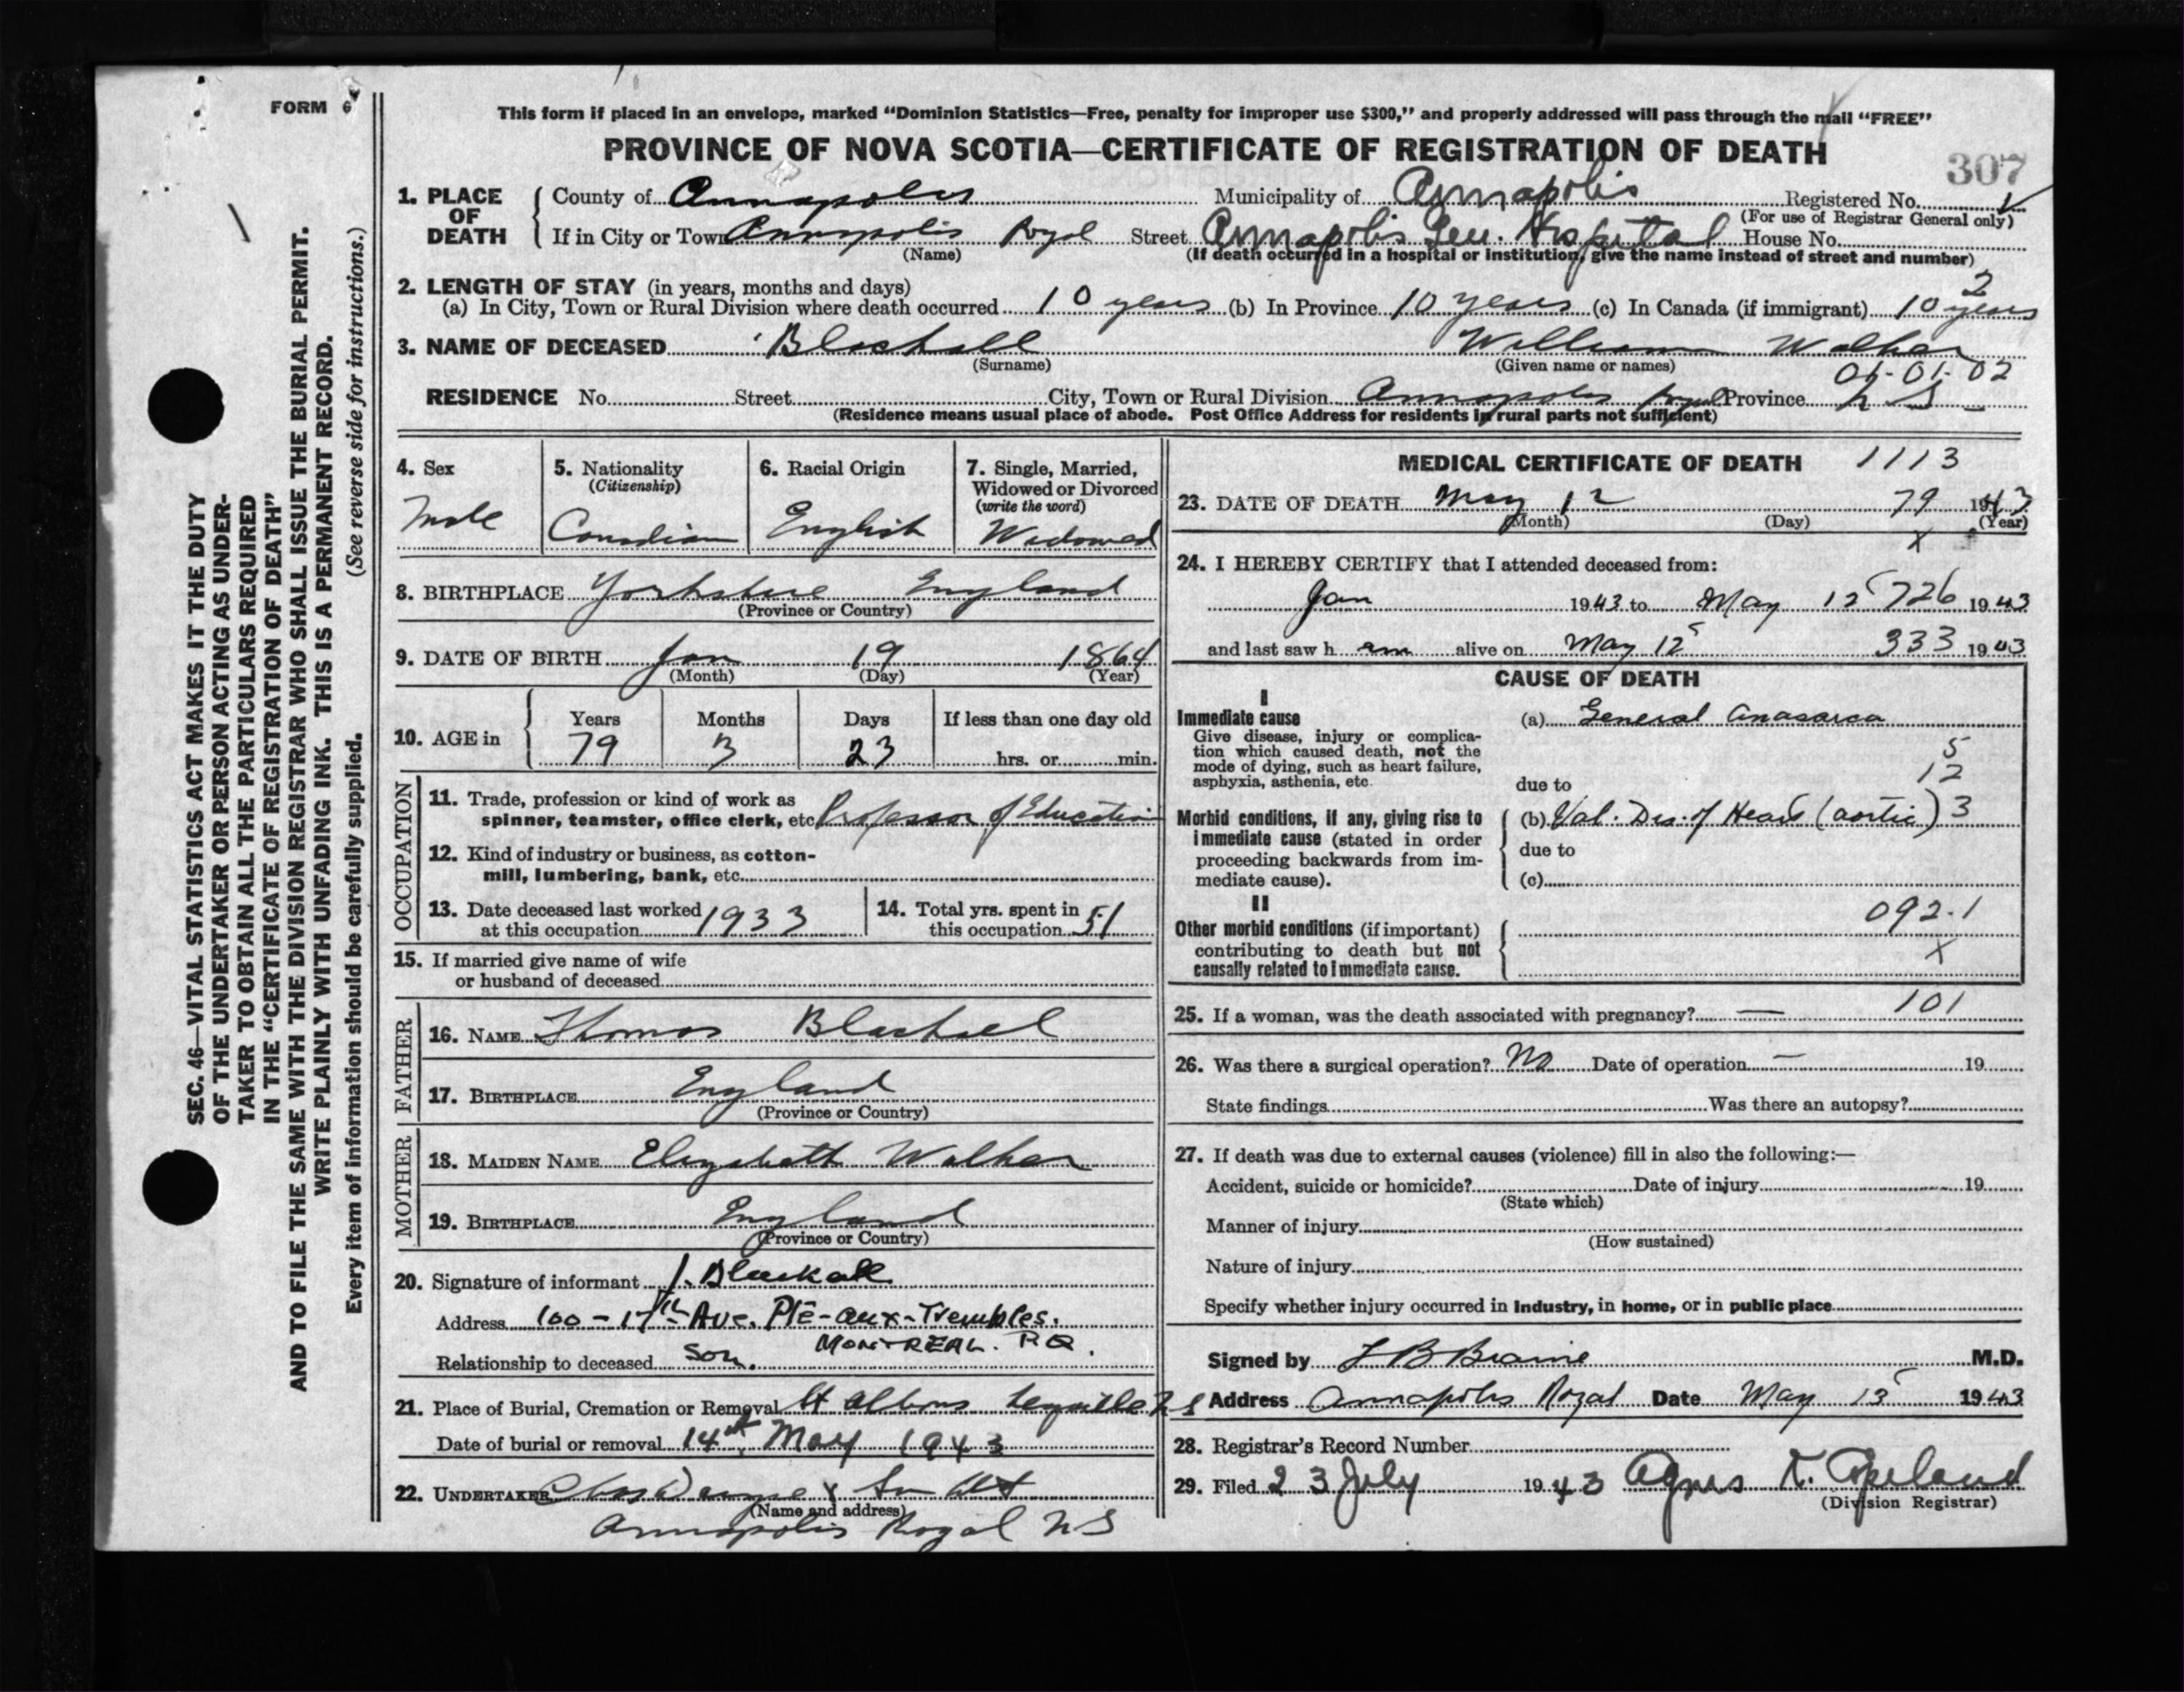 FORM 6
This form if placed in an envelope, marked “Dominion Statistics—Free, penalty for improper use $300,” and properly addressed will pass through the mail “FREE”
PROVINCE OF NOVA SCOTIA—CERTIFICATE OF REGISTRATION OF DEATH
307
1. PLACE OF DEATH County of Annapolis Municipality of Annapolis Registered No.
(For use of Registrar General only)
If in City or Town Annapolis Royal Street Annapolis Gen. Hospital House No.
(Name) (If death occurred in a hospital or institution, give the name instead of street and number)
2. LENGTH OF STAY (in years, months and days)
2
(a) In City, Town or Rural Division where death occurred 10 years (b) In Province 10 years (c) In Canada (if immigrant) 10 years
3. NAME OF DECEASED Blackall William Walker
(Surname) (Given name or names)
01-01-02
RESIDENCE No. Street City, Town or Rural Division Annapolis Royal Province N S
(Residence means usual place of abode. Post Office Address for residents in rural parts not sufficient)
4. Sex
Male
5. Nationality
(Citizenship)
Canadian
6. Racial Origin
English
7. Single, Married,
Widowed or Divorced
(write the word)
Widowed
8. BIRTHPLACE Yorkshire England
(Province or Country)
9. DATE OF BIRTH Jan 19 1864
(Month) (Day) (Year)
10. AGE in
Years Months Days If less than one day old
79 3 23 hrs. or min.
OCCUPATION
11. Trade, profession or kind of work as
spinner, teamster, office clerk, etc. Professor of Education
12. Kind of industry or business, as cotton-
mill, lumbering, bank, etc.
13. Date deceased last worked
at this occupation 1933
14. Total yrs. spent in
this occupation 51
15. If married give name of wife
or husband of deceased
FATHER
16. NAME Thomas Blackall
17. BIRTHPLACE England
(Province or Country)
MOTHER
18. MAIDEN NAME Elizabeth Walker
19. BIRTHPLACE England
(Province or Country)
20. Signature of informant J. Blackall
Address 100 - 17th Ave. Pte-aux-Trembles.
MONTREAL. P.Q.
Relationship to deceased Son.
21. Place of Burial, Cremation or Removal St Albans Lequille N S
Date of burial or removal 14th May 1943
22. UNDERTAKER & Son
(Name and address)
Annapolis Royal N S
MEDICAL CERTIFICATE OF DEATH 1113
23. DATE OF DEATH May 12 79 1943
(Month) (Day) (Year)
X
24. I HEREBY CERTIFY that I attended deceased from:
Jan 1943 to May 12 726 1943
and last saw h im alive on May 12 333 1943
CAUSE OF DEATH
I
Immediate cause (a) General Anasarca
Give disease, injury or complica-
tion which caused death, not the
mode of dying, such as heart failure,
asphyxia, asthenia, etc.
5
12
due to
Morbid conditions, if any, giving rise to
immediate cause (stated in order
proceeding backwards from im-
mediate cause).
(b) Val. Dis. of Heart (aortic) 3
due to
(c)
II
Other morbid conditions (if important)
contributing to death but not
causally related to immediate cause.
092.1
X
101
25. If a woman, was the death associated with pregnancy? —
26. Was there a surgical operation? No Date of operation — 19
State findings Was there an autopsy?
27. If death was due to external causes (violence) fill in also the following:—
Accident, suicide or homicide? Date of injury 19
(State which)
Manner of injury
(How sustained)
Nature of injury
Specify whether injury occurred in industry, in home, or in public place
Signed by L B Braine M.D.
Address Annapolis Royal Date May 13 1943
28. Registrar's Record Number
29. Filed 23 July 1943 Agnes K. Copeland
(Division Registrar)
SEC. 46—VITAL STATISTICS ACT MAKES IT THE DUTY
OF THE UNDERTAKER OR PERSON ACTING AS UNDER-
TAKER TO OBTAIN ALL THE PARTICULARS REQUIRED
IN THE “CERTIFICATE OF REGISTRATION OF DEATH”
AND TO FILE THE SAME WITH THE DIVISION REGISTRAR WHO SHALL ISSUE THE BURIAL PERMIT.
WRITE PLAINLY WITH UNFADING INK. THIS IS A PERMANENT RECORD.
Every item of information should be carefully supplied. (See reverse side for instructions.)